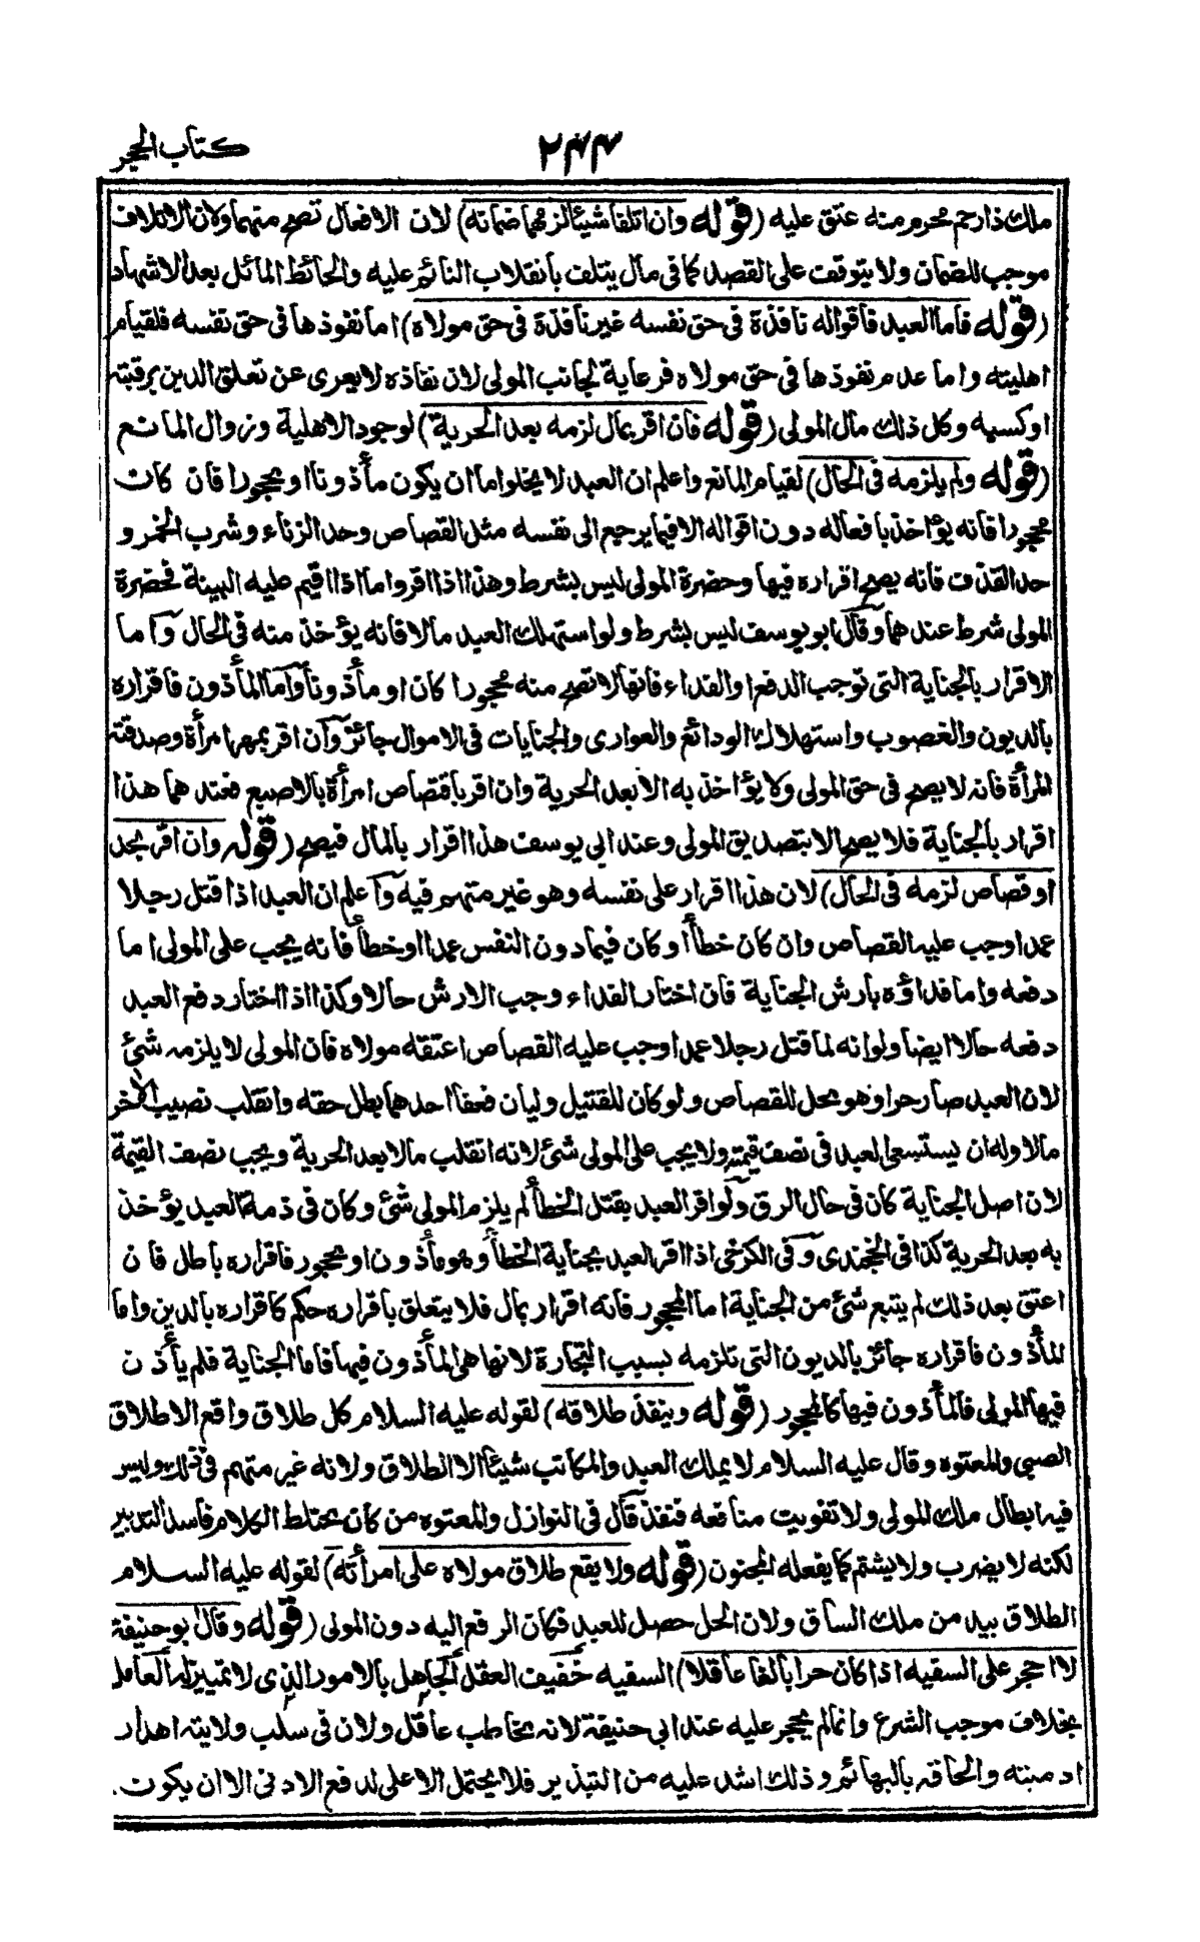 كتاب الحجر
٢٤٤
ملك ذا رحم محرم منه عتق عليه (قوله وان اتلفا شيئا لزمهما ضمانه) لان الافعال تصح منهما ولان الاتلاف
موجب للضمان ولا يتوقف على القصد كما فى مال يتلف بانقلاب النائم عليه والحائط المائل بعد الاشهاد
(قوله فاما العبد فاقواله نافذة فى حق نفسه غير نافذة فى حق مولاه) اما نفوذها فى حق نفسه فلقيام
اهليته واما عدم نفوذها فى حق مولاه فرعاية لجانب المولى لان نفاذه لا يعرى عن تعلق الدين برقبته
او كسبه وكل ذلك مال المولى (قوله فان اقر بمال لزمه بعد الحرية) لوجود الاهلية وزوال المانع
(قوله ولم يلزمه فى الحال) لقيام المانع واعلم ان العبد لا يخلو اما ان يكون مأذونا او محجورا فان كان
محجورا فانه يؤاخذ بافعاله دون اقواله الا فيما يرجع الى نفسه مثل القصاص وحد الزناء وشرب الخمر و
حد القذف فانه يصح اقراره فيها وحضرة المولى ليس بشرط وهذا اذا اقر واما اذا اقيم عليه البينة فحضرة
المولى شرط عندهما وقال ابو يوسف ليس بشرط ولو استهلك العبد مالا فانه يؤخذ منه فى الحال واما
الاقرار بالجناية التى توجب الدفع او الفداء فانها لا تصح منه محجورا كان او مأذونا واما المأذون فاقراره
بالديون والغصوب واستهلاك الودائع والعوارى والجنايات فى الاموال جائز وان اقر بمهر امرأة وصدقته
المرأة فانه لا يصح فى حق المولى ولا يؤاخذ به الا بعد الحرية وان اقر باقتصاص امرأة بالاصبع فعندهما هذا
اقرار بالجناية فلا يصح الا بتصديق المولى وعند ابى يوسف هذا اقرار بالمال فيصح (قوله وان اقر بحد
او قصاص لزمه فى الحال) لان هذا اقرار على نفسه وهو غير متهم فيه واعلم ان العبد اذا قتل رجلا
عمدا وجب عليه القصاص وان كان خطأ او كان فيما دون النفس عمدا او خطأ فانه يجب على المولى اما
دفعه واما فداؤه بارش الجناية فان اختار الفداء وجب الارش حالا وكذا اذا اختار دفع العبد
دفعه حالا ايضا ولو انه لما قتل رجلا عمدا وجب عليه القصاص اعتقه مولاه فان المولى لا يلزمه شئ
لان العبد صار حرا وهو محل للقصاص ولو كان للقتيل وليان فعفا احدهما بطل حقه وانقلب نصيب الآخر
مالا وله ان يستسعى العبد فى نصف قيمته ولا يجب على المولى شئ لانه انقلب مالا بعد الحرية ويجب نصف القيمة
لان اصل الجناية كان فى حال الرق ولو اقر العبد بقتل الخطأ لم يلزم المولى شئ وكان فى ذمة العبد يؤخذ
به بعد الحرية كذا فى الخجندى وفى الكرخى اذا اقر العبد بجناية الخطأ وهو مأذون او محجور فاقراره باطل فان
اعتق بعد ذلك لم يتبع شئ من الجناية اما المحجور فانه اقرار بمال فلا يتعلق باقراره حكم كاقراره بالدين واما
المأذون فاقراره جائز بالديون التى تلزمه بسبب التجارة لانها هى المأذون فيها فاما الجناية فلم يأذن
فيها المولى فالمأذون فيها كالمحجور (قوله وينفذ طلاقه) لقوله عليه السلام كل طلاق واقع الا طلاق
الصبى والمعتوه وقال عليه السلام لا يملك العبد والمكاتب شيئا الا الطلاق ولانه غير متهم فى ذلك وليس
فيه ابطال ملك المولى ولا تفويت منافعه فنفذ قال فى النوازل والمعتوه من كان مختلط الكلام فاسد التدبير
لكنه لا يضرب ولا يشتم كما يفعله المجنون (قوله ولا يقع طلاق مولاه على امرأته) لقوله عليه السلام
الطلاق بيد من ملك الساق ولان الحل حصل للعبد فكان الرفع اليه دون المولى (قوله وقال ابو حنيفة
لا احجر على السفيه اذا كان حرا بالغا عاقلا) السفيه خفيف العقل الجاهل بالامور الذى لا تمييز له العامل
بخلاف موجب الشرع وانما لم يحجر عليه عند ابى حنيفة لانه مخاطب عاقل ولان فى سلب ولايته اهدار
ادميته والحاقه بالبهائم وذلك اشد عليه من التبذير فلا يحتمل الاعلى لدفع الادنى الا ان يكون